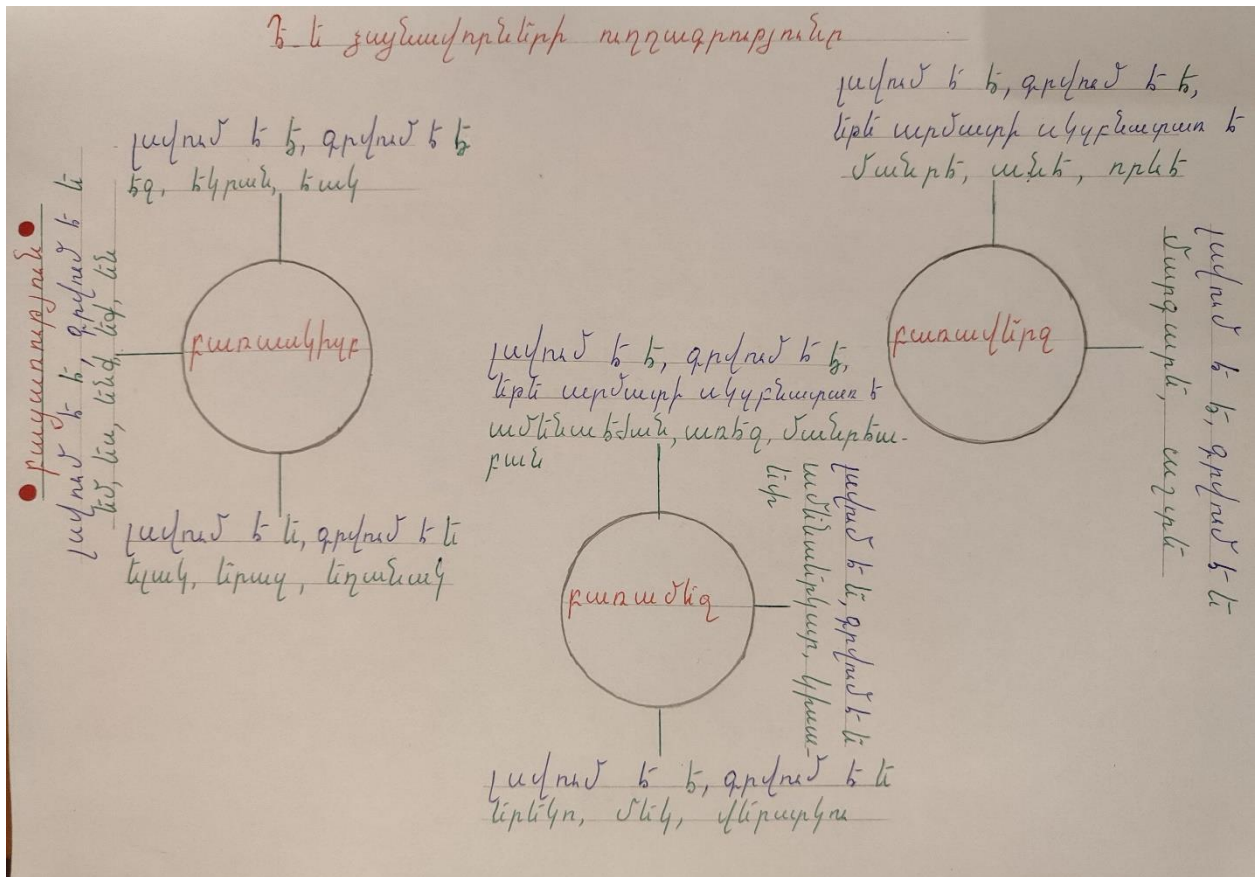 Է Ե ձայնավորների ուղղագրությունը
լսվում է է, գրվում է է
էզ, էկրան, էակ
բառասկիզբ
• բացառություն •
լսվում է է, գրվում է ե
եմ, ես, ենք, եք, են
լսվում է ե, գրվում է ե
ելակ, երազ, եղանակ
լսվում է է, գրվում է է,
եթե արմատի սկզբնատառ է
ամենաէժան, առէգ, մանրէա-
բան
բառամեջ
լսվում է ե, գրվում է ե
ամենաերկար, կիսա-
եփ
լսվում է է, գրվում է ե
երեկո, մեկ, վերարկու
լսվում է է, գրվում է է,
եթե արմատի սկզբնատառ է
մանրէ, անէ, որևէ
բառավերջ
լսվում է է, գրվում է ե
մարգարե, աշտե